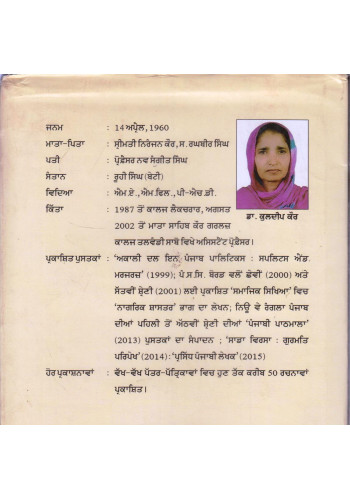 ਜਨਮ : 14 ਅਪ੍ਰੈਲ, 1960
ਮਾਤਾ-ਪਿਤਾ : ਸ੍ਰੀਮਤੀ ਨਿਰੰਜਨ ਕੌਰ, ਸ. ਰਘਬੀਰ ਸਿੰਘ
ਪਤੀ : ਪ੍ਰੋਫ਼ੈਸਰ ਨਵ ਸੰਗੀਤ ਸਿੰਘ
ਸੰਤਾਨ : ਰੂਹੀ ਸਿੰਘ (ਬੇਟੀ)
ਵਿਦਿਆ : ਐਮ.ਏ., ਐਮ.ਫਿਲ., ਪੀ-ਐਚ.ਡੀ.
ਕਿੱਤਾ : 1987 ਤੋਂ ਕਾਲਜ ਲੈਕਚਰਾਰ, ਅਗਸਤ
2002 ਤੋਂ ਮਾਤਾ ਸਾਹਿਬ ਕੌਰ ਗਰਲਜ਼
ਕਾਲਜ ਤਲਵੰਡੀ ਸਾਬੋ ਵਿਖੇ ਅਸਿਸਟੈਂਟ ਪ੍ਰੋਫ਼ੈਸਰ।
ਡਾ. ਕੁਲਦੀਪ ਕੌਰ
ਪ੍ਰਕਾਸ਼ਿਤ ਪੁਸਤਕਾਂ : 'ਅਕਾਲੀ ਦਲ ਇਨ ਪੰਜਾਬ ਪਾਲਿਟਿਕਸ : ਸਪਲਿਟਸ ਐਂਡ
ਮਰਜਰਜ਼' (1999); ਪੰ.ਸ.ਸਿ. ਬੋਰਡ ਵਲੋਂ ਛੇਵੀਂ (2000) ਅਤੇ
ਸੱਤਵੀਂ ਸ਼੍ਰੇਣੀ (2001) ਲਈ ਪ੍ਰਕਾਸ਼ਿਤ 'ਸਮਾਜਿਕ ਸਿਖਿਆ' ਵਿਚ
'ਨਾਗਰਿਕ ਸ਼ਾਸਤਰ' ਭਾਗ ਦਾ ਲੇਖਨ; ਨਿਊ ਵੇ ਰੰਗਲਾ ਪੰਜਾਬ
ਦੀਆਂ ਪਹਿਲੀ ਤੋਂ ਅੱਠਵੀਂ ਸ਼੍ਰੇਣੀ ਦੀਆਂ 'ਪੰਜਾਬੀ ਪਾਠਮਾਲਾ'
(2013) ਪੁਸਤਕਾਂ ਦਾ ਸੰਪਾਦਨ ; 'ਸਾਡਾ ਵਿਰਸਾ : ਗੁਰਮਤਿ
ਪਰਿਪੇਖ' (2014): 'ਪ੍ਰਸਿੱਧ ਪੰਜਾਬੀ ਲੇਖਕ' (2015)
ਹੋਰ ਪ੍ਰਕਾਸ਼ਨਾਵਾਂ : ਵੱਖ-ਵੱਖ ਪੱਤਰ-ਪੱਤ੍ਰਿਕਾਵਾਂ ਵਿਚ ਹੁਣ ਤੱਕ ਕਰੀਬ 50 ਰਚਨਾਵਾਂ
ਪ੍ਰਕਾਸ਼ਿਤ।